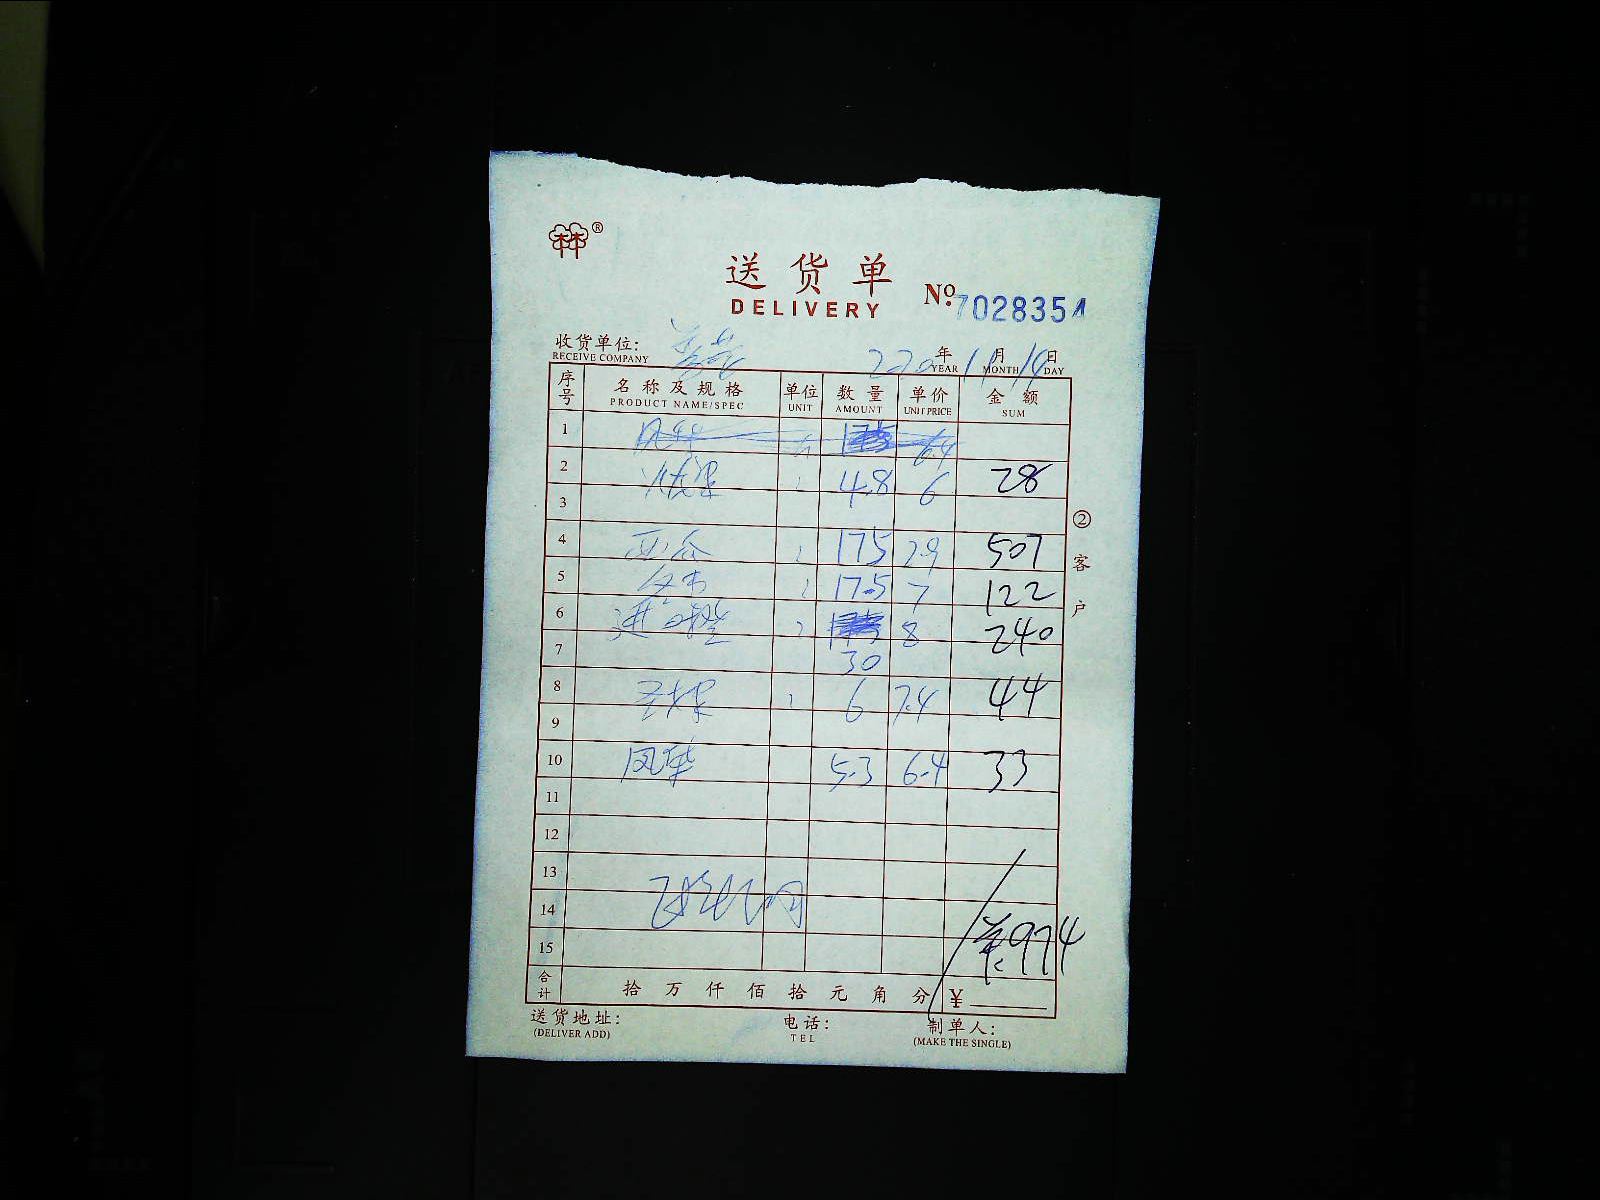 ®
送货单
DELIVERY
№ 7028354
收货单位:
RECEIVE COMPANY
220 年 11 月 14 日
YEAR MONTH DAY
序号 名称及规格 单位 数量 单价 金额
PRODUCT NAME/SPEC UNIT AMOUNT UNIT PRICE SUM
1 6.4
2 4.8 6 28
3
4 西瓜 175 2.9 507
5 17.5 7 122
6 进口橙 8 240
7 30
8 6 7.4 44
9
10 凤梨 5.3 6.4 33
11
12
13
14
15 974
合计 拾 万 仟 佰 拾 元 角 分 ¥
② 客户
送货地址: 电话: 制单人:
(DELIVER ADD) TEL (MAKE THE SINGLE)